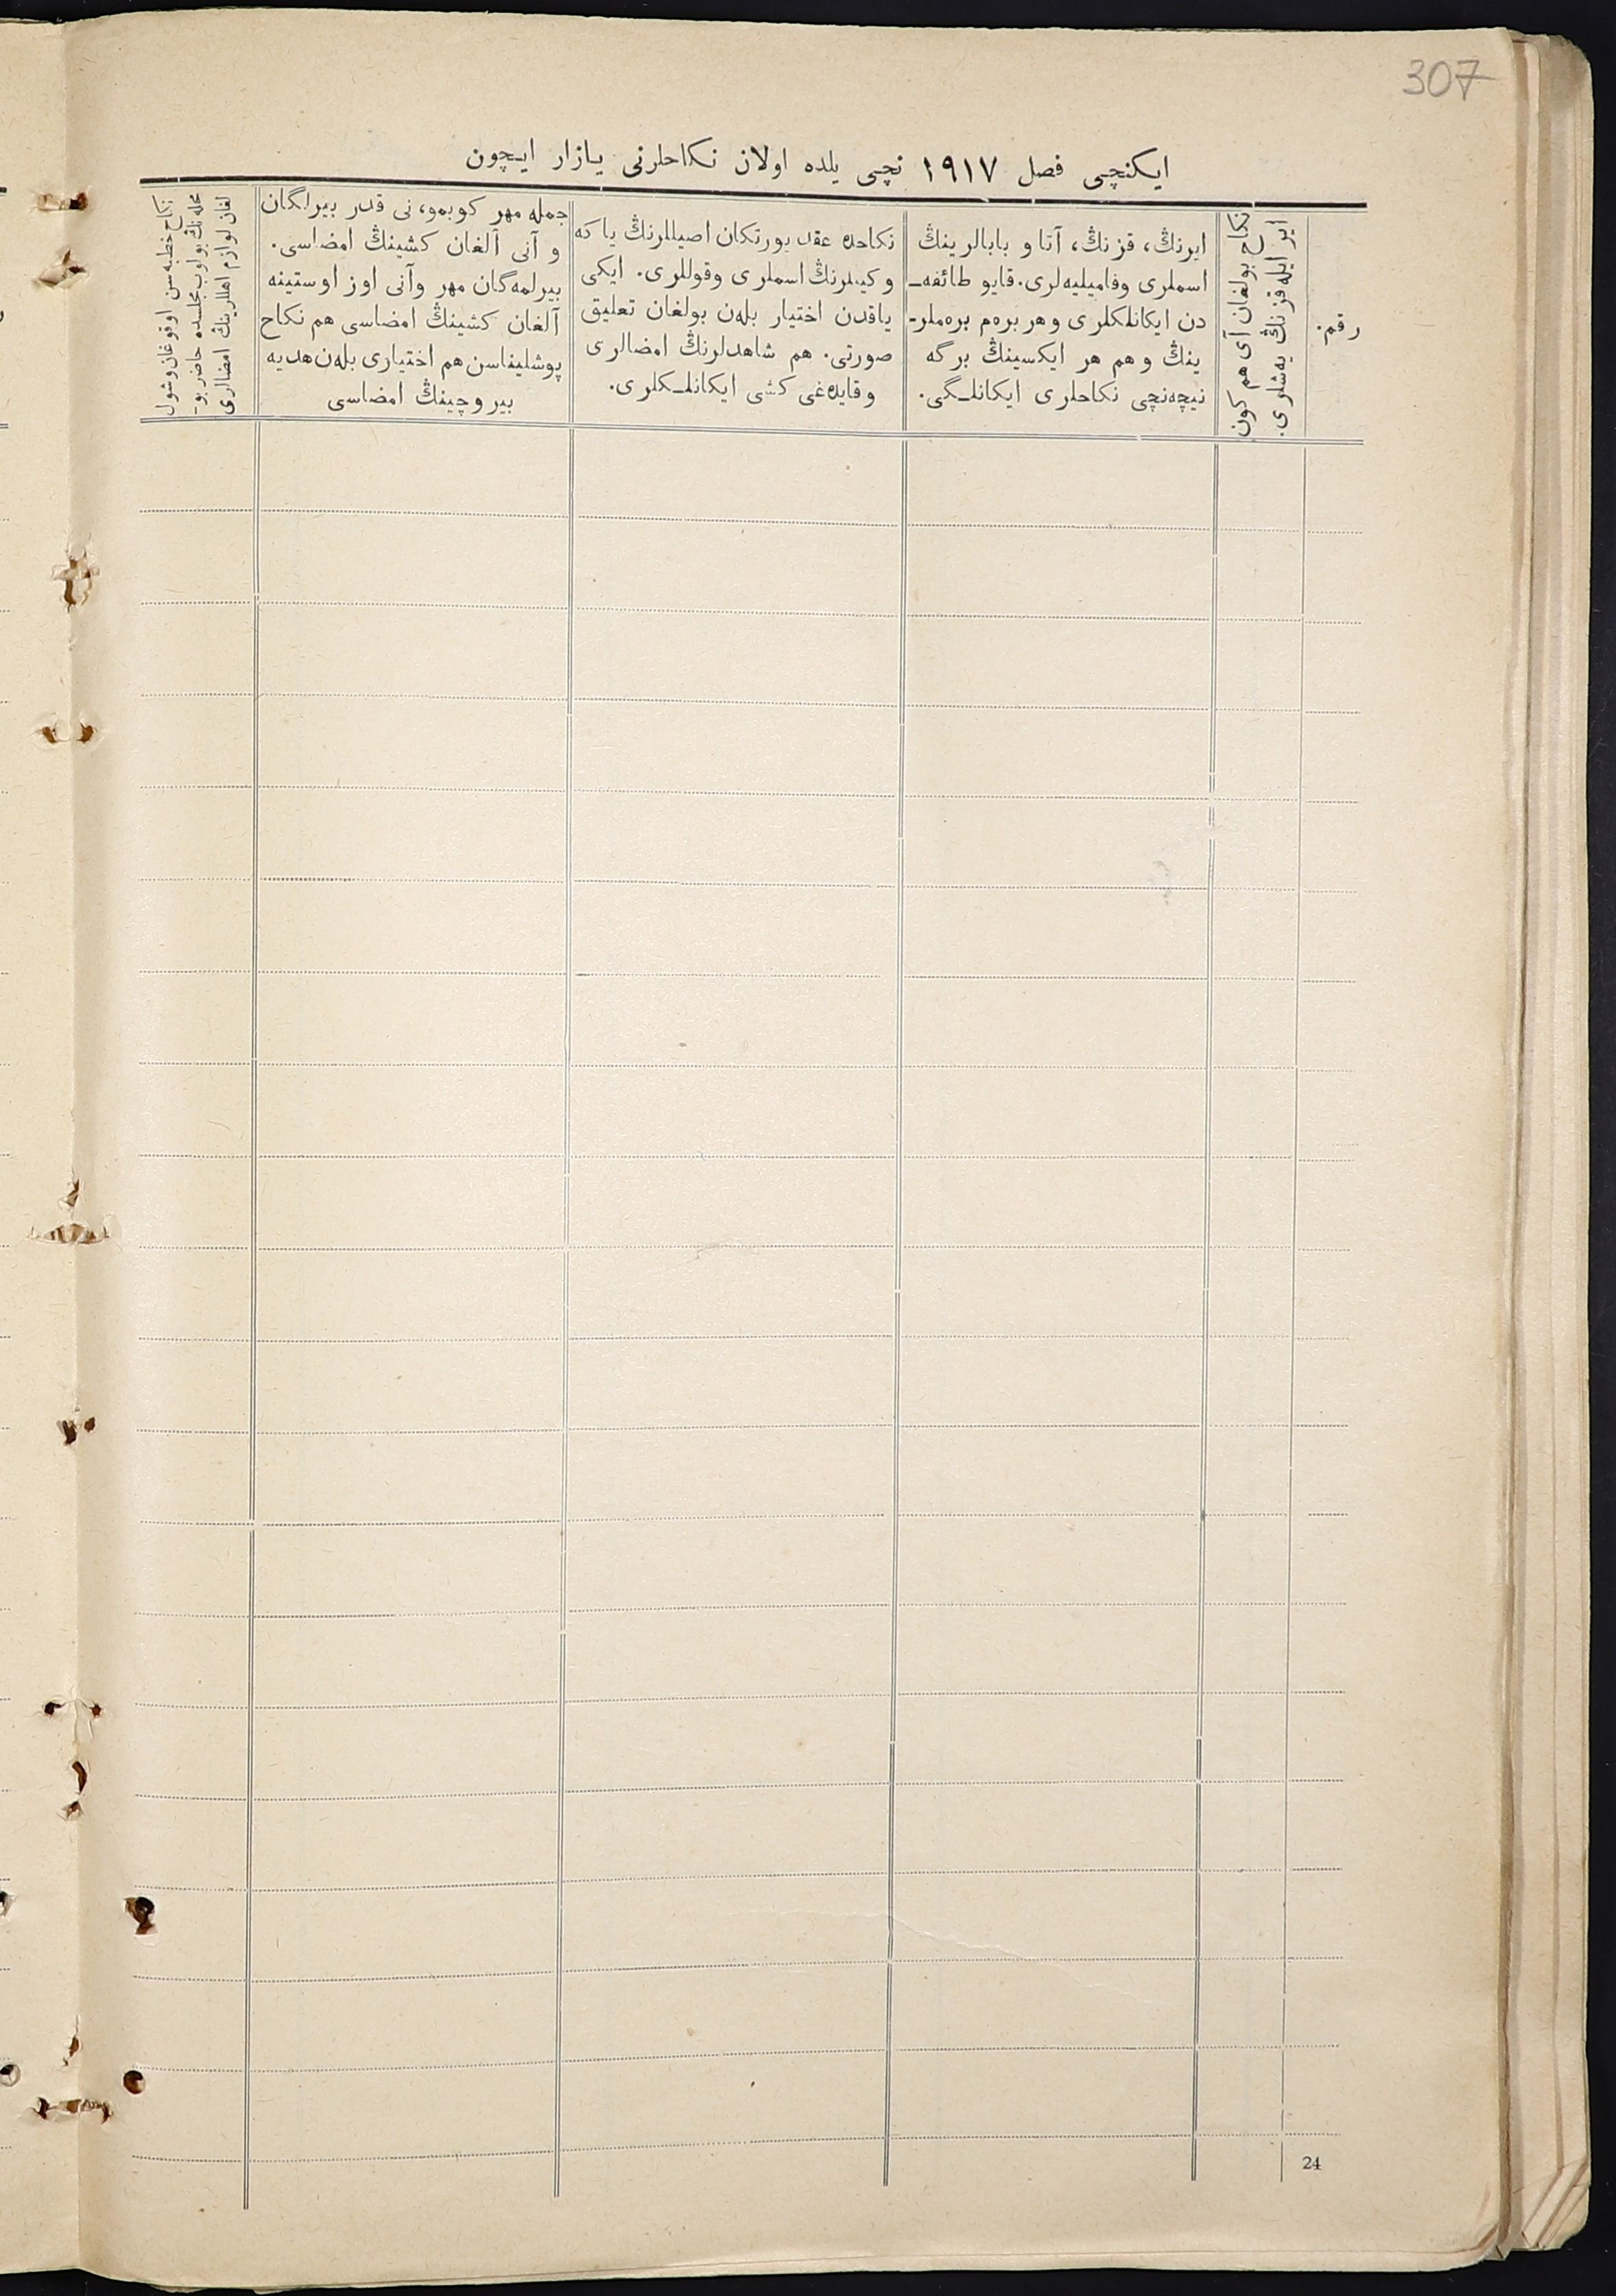 307
ایکنچی فصل ۱۹۱۷ نچی یلده اولان نکاحلرنی یازار ایچون
رقم.
نکاح بولغان آی هم کون
ایر ایله قزنڭ یەشلری.
ایرنڭ، قزنڭ، آتا و بابالرینڭ
اسملری وفامیلیەلری. قایو طائفەـ
دن ایکانلکلری وهر برەم برەملرـ
ینڭ وهم هر ایکسینڭ برگه
نیچەنچی نکاحلری ایکانلـگی.
نکاحدە عقد یورتکان اصیللرنڭ یا که
وکیلرنڭ اسملری وقوللری. ایکی
یاقدن اختیار بلەن بولغان تعلیق
صورتی. هم شاهدلرنڭ امضالری
وقایدەغی کشی ایکانلـکلری.
جمله مهر کوبمو، نی قدر بیرلگان
و آنی آلغان کشینڭ امضاسی.
بیرلمەگان مهر وآنی اوز اوستینه
آلغان کشینڭ امضاسی هم نکاح
پوشلیناسن هم اختیاری بلەن هدیه
بیروچینڭ امضاسی
نکاح خطبەسن اوقوغان وشول
محلەنڭ بولوب مجلسده حاضر بوـ
لغان لوازم اهللرینڭ امضالری
24